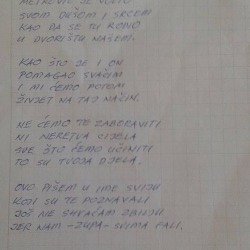 METKOVIĆ SE VOLIO
SVOM DUŠOM I SRCEM
KAO DA SE TU RODIO
U DVORIŠTU NAŠEM.

KAO ŠTO JE I ON
POMAGAO SVAČIM
I MI ĆEMO POTOM
ŽIVJET NA TAJ NAČIN.

NE ĆEMO TE ZABORAVITI
NI NERETVA CIJELA
SVE ŠTO ĆEMO UČINITI
TO SU TVOJA DJELA.

OVO PIŠEM U IME SVIJU
KOJI SU TE POZNAVALI
JOŠ NE SHVAĆAM ZBILJU
JER NAM -JUPA- SVIMA FALI.